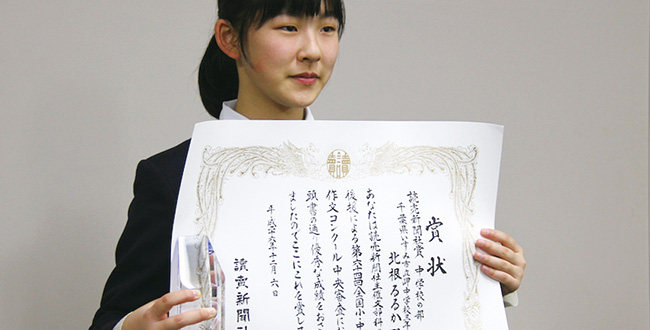 賞状
読売新聞社賞 中学校の部
千葉県いすみ市立岬中学校
北根るるか
あなたは読売新聞社主催文部科
後援による第六十四回全国小中
作文コンクール中央審査に
頭書の通り優秀な成績をおさ
ましたのでここにこれを賞し
平成二十六年十二月六日
読売新聞